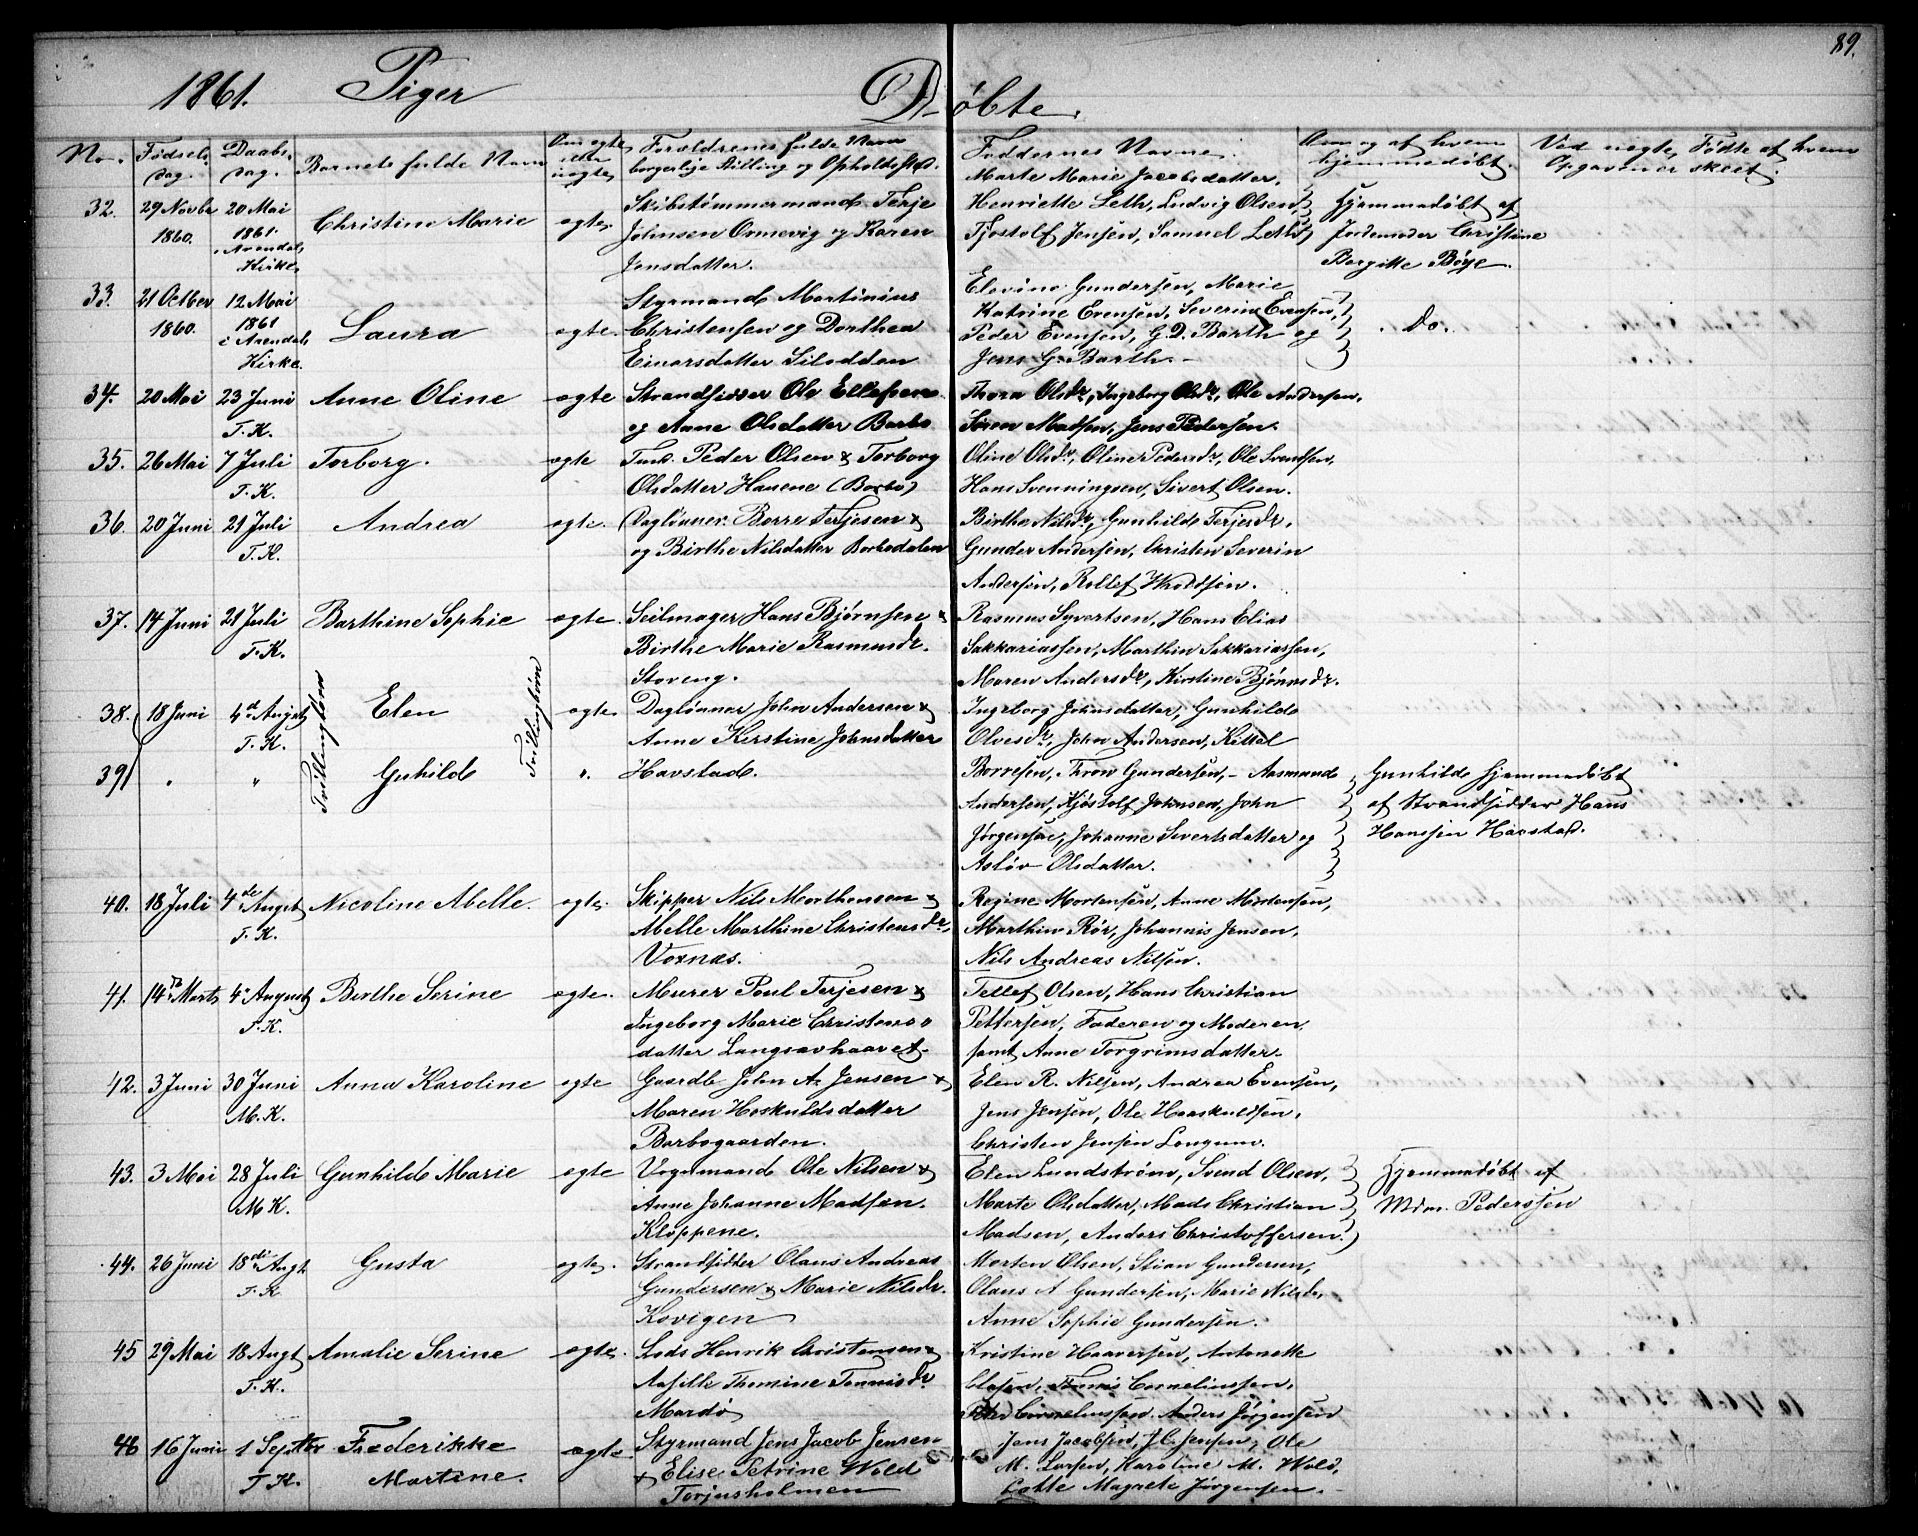 89.
1861. Piger Døbte.
No. Fødsels Dag. Daabs Dag. Barnets fulde Navn Om ægte eller uægte Forældrenes fulde Navn borgerlige Stilling og Opholdssted. Faddernes Navne. Om og af hvem hjemmedøbt. Ved uægte, Fødte af hvem Opgaven er skeet.
Marte Marie Jacobsdatter,
32. 29 Novbr 20 Mai Christine Marie ægte. Skibstømmermand Terje Henriette Leth, Ludvig Olsen, Hjemmedøbt af
1860. 1861. Johnsen Ormevig og Karen Tjostolf Jensen, Samuel Leth Jordemoder Christine
Arendals Kirke Jensdatter. Borgitte Bøye.
33. 21 Octber 12 Mai Laura ægte. Styrmand Martinius Elevine Gundersen, Marie
1860. 1861 Christensen og Dorthea Katrine Evensen, Severine Evensen, do.
i Arendals Einarsdatter Silodden Peder Evensen, G. D. Barth og
Kirke. Jens G. Barth.
34. 20 Mai 23 Juni Anne Oline ægte Strandsidder Ole Ellefsen Thora Olsdr, Ingeborg Olsdr, Ole Andersen,
T. K. og Anne Olsdatter Barbo Søren Madsen, Jens Pedersen.
35. 26 Mai 7 Juli Torborg. ægte Tmd. Peder Olsen & Torborg Oline Olsdr, Oline Pedersdr, Ole Svendsen,
T. K. Olsdatter Hauene (Barbo) Hans Svenningsen, Sivert Olsen.
36. 20 Juni 21 Juli Andrea ægte. Daglønner Børre Terjesen & Birthe Nilsdr, Gunhilde Terjesdr,
T. K. og Birthe Nilsdatter Barbodalen Gunder Andersen, Christen Severin
Andersen, Rollef
37. 14 Juni 21 Juli Barthine Sophie ægte. Seilmager Hans Bjørnsen & Rasmus Syvertsen, Hans Elias
T. K. Birthe Marie Rasmusdr. Sakkariassen, Marthin Sakkariassen,
Stoveng. Maren Andersdr, Kirstine Bjørnsdr.
38. 18 Juni 4de August Tvillingbørn Elen Tvillingbørn ægte Daglønner John Andersen & Ingeborg Johnsdatter, Gunhilde
T. K. Anne Kirstine Johnsdatter Olvesdr, John Andersen, Kittel
39 " " Guhilde " Havstad. Borresen, Thron Gundersen, - Aasmund Gunhilde hjemmedøbt
Andersen, Kjøstolf Johnsen, John af Strandsidder Hans
Jørgensen, Johanne Sivertsdatter og Hanssen Havstad.
Asløv Olsdatter.
40. 18 Juli 4de August Nicoline Abelle. ægte. Skipper Nils Morthensen & Regine Mortensen, Anne Mortensen,
T. K. Abelle Marthine Christensdr, Marthin Rør, Johannis Jensen,
Voxnæs. Nils Andreas Nilsen.
41. 14de Marts 4 August Birthe Serine ægte. Murer Poul Terjesen & Tellef Olsen, Hans Christian
T. K. Ingeborg Marie Christens Pettersen, Faderen og Moderen
datter Langsævhaavet. samt Anne Torgrimsdatter
42. 3 Juni 30 Juni Anna Karoline ægte Gaardb. John A. Jensen & Elen R. Nilsen, Andrea Evensen,
M. K. Maren Hoskuldsdatter Jens Jensen, Ole Haaskuldsen,
Barbogaarden. Christen Jensen Longum.
43. 3 Mai 28 Juli Gunhilde Marie ægte Vognmand Ole Nilsen & Elen Lundstrøm, Svend Olsen, Hjemmedøbt af
M K. Anne Johanne Madsen. Marte Olsdatter, Mads Christian Mdm. Pederssen
Kløppene. Madsen, Anders Christoffersen.
44. 26 Juni 18de Augt Gusta ægte. Strandsidder Olaus Andreas Morten Olsen, Stian Gundersen,
T. K. Gundersen & Marie Nilsdr. Olaus A Gundersen, Marie Nilsdr,
Kovigen Anne Sophie Gundersen.
45 29 Mai 18 Augt Amalie Serine ægte. Lods Henrik Christensen & Kristine Haaversen, Antonette
T. K. Thomine Tønnisdr Olasen, Tønnis Cornelinssen,
Mardø Peder Cornelinssen, Anders Jørgensen
46 16 Juni 1 Septbr Frederikke ægte. Styrmand Jens Jacob Jensen Jens Jacobsen, J. C. Jensen, Ole
T K. Martine. & Elise Petrine Wold M. Larsen, Karoline M. Wold,
Torjusholmen Lotte Magrete Jørgensen.